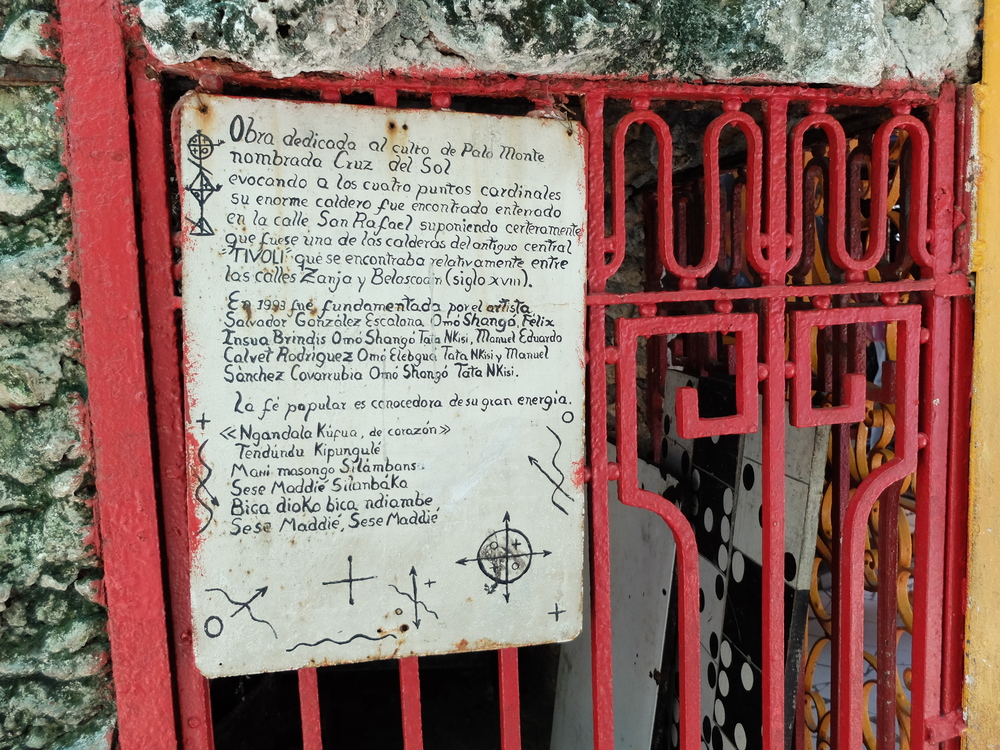 Obra dedicada al culto de Palo Monte
nombrada Cruz del Sol
evocando a los cuatro puntos cardinales
su enorme caldero fue encontrado enterrado
en la calle San Rafael suponiendo certeramente
que fuese una de las calderas del antiguo central
"TIVOLI" que se encontraba relativamente entre
las calles Zanja y Belascoain (siglo XVIII).
En 1993 fué fundamentada por el artista
Salvador González Escalona Omó Shangó, Félix
Insua Brindis Omó Shangó Tata NKisi, Manuel Eduardo
Calvet Rodriguez Omó Elebgua Tata NKisi y Manuel
Sánchez Covarrubia Omó Shangó Tata NKisi.
La fé popular es conocedora de su gran energia.
«Ngandala Kúfua, de corazón»
Tendúndu Kipungulé
Mani masongo Silambans
Sese Maddié Silanbáka
Bica dioko bica ndiambe
Sese Maddié, Sese Maddié